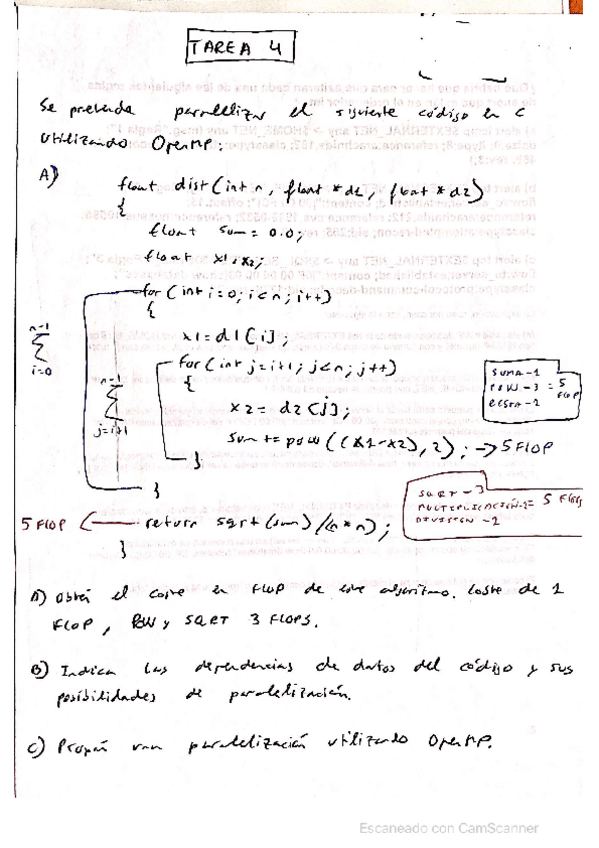 TAREA 4
Se pretende paralelizar el siguiente código en C
utilizando OpenMP:
A)
float dist(int n, float *d1, float *d2)
{
float sum = 0.0;
float x1, x2;
for (int i=0; i<n; i++)
{
n-1
∑
i=0
x1 = d1[i];
for (int j=i+1; j<n; j++)
n-1
∑
j=i+1
{
x2 = d2[j];
sum += pow((x1-x2), 2); -> 5 FLOP
}
}
SUMA - 1
POW - 3 = 5
FLOP
RESTA - 1
5 FLOP <— return sqrt(sum)/(n*n);
}
SQRT - 3
MULTIPLICACIÓN - 1 = 5 FLOPS
DIVISIÓN - 1
A) Obtén el coste en FLOP de este algoritmo. Coste de 1
FLOP, POW y SQRT 3 FLOPS.
B) Indica las dependencias de datos del código y sus
posibilidades de paralelización.
C) Propón una paralelización utilizando OpenMP.
Escaneado con CamScanner